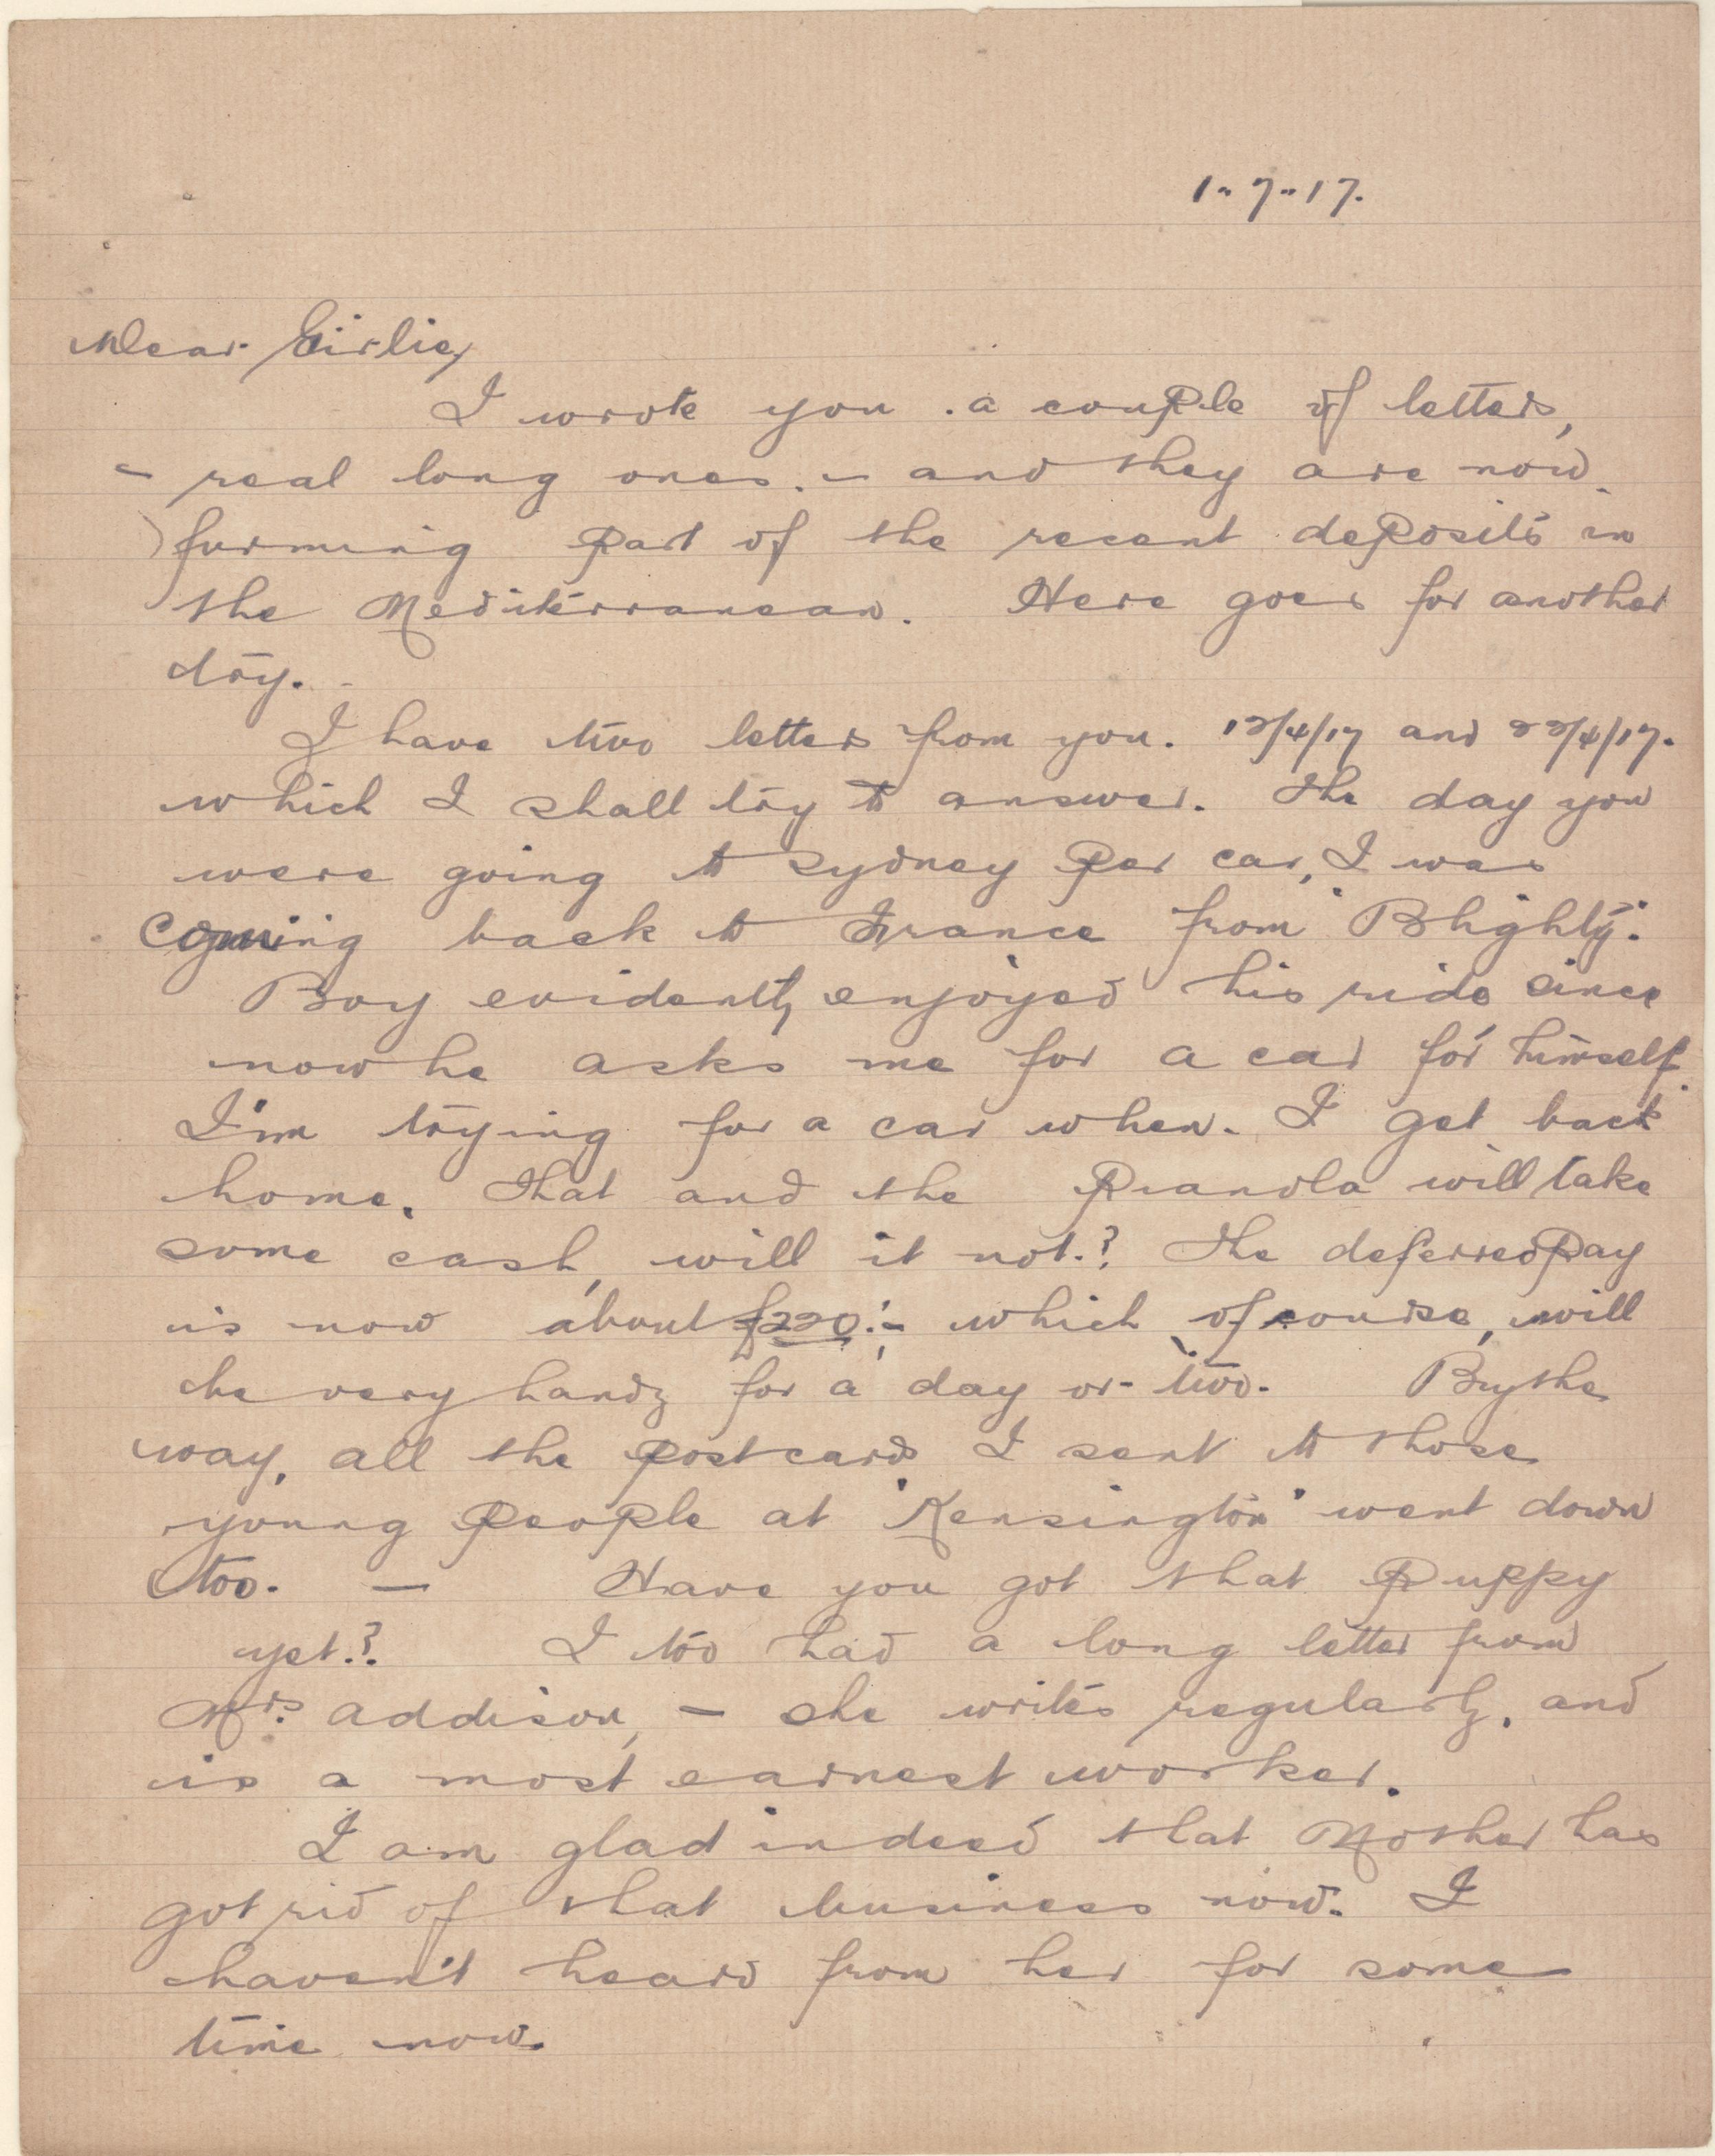 1-7-17.
Dear Girlie,
I wrote you a couple of letters,
- real long ones. - and they are now
forming part of the recent deposits in
the Mediterranean. Here goes for another
try.
I have two letters from you. 12/4/17 and 22/4/17.
which I shall try to answer. The day you
were going to Sydney per car, I was
coming back to France from "Blighty".
Boy evidently enjoyed his ride since
now he asks me for a car for himself.
I'm trying for a car when I get back
home. That and the Pianola will take
some cash, will it not.? The deferred pay
is now about £220:- which, of course, will
be very handy for a day or two. By the
way, all the postcards I sent to those
young people at "Kensington" went down
too. — Have you got that puppy
yet.? I too had a long letter from
Mrs. Addison, - she writes regularly, and
is a most earnest worker.
I am glad indeed that Mother has
got rid of that business now. I
haven't heard from her for some
time now.